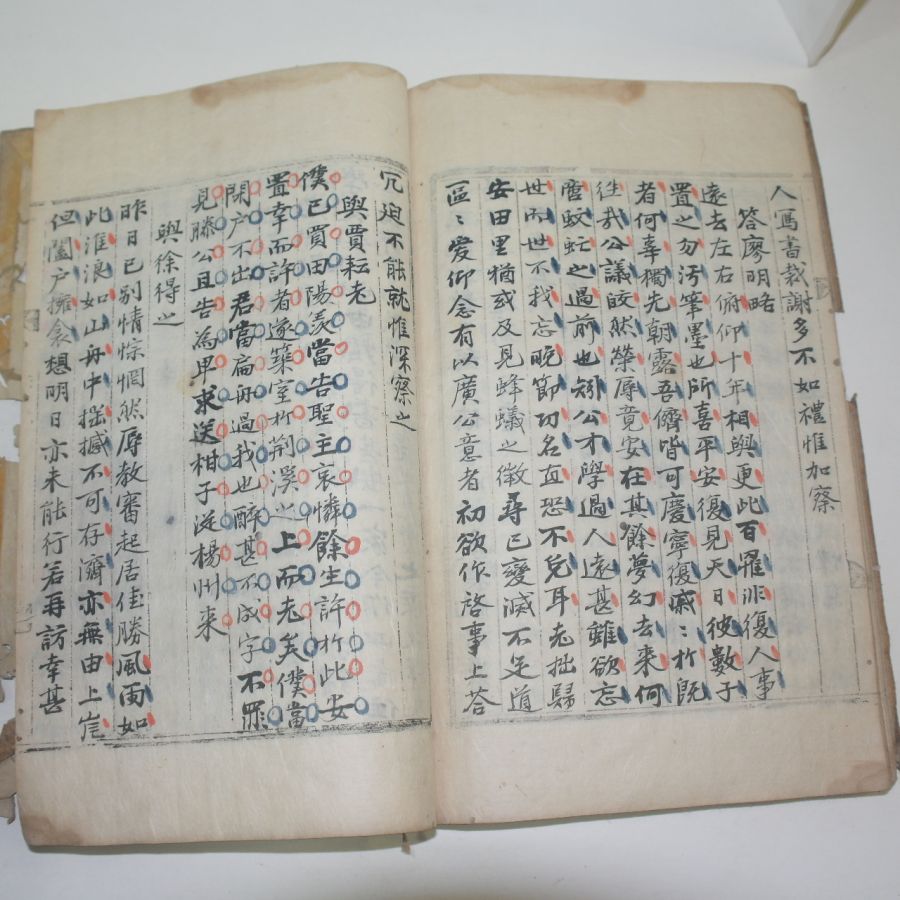 人寫書裁謝多不如禮惟加察
答廖明略
遠去左右俯仰十年相與更此百罹非復人事
置之勿汚筆墨也所喜平安復見天日彼數子
者何辜獨先朝露吾儕皆可慶寧復戚〻於既
徃哉公議皎然榮辱竟安在其餘夢幻去来何
啻蚊蝱之過前也矧公才學過人遠甚雖欲忘
世而世不我忘晚節功名直恐不免耳老拙歸
安田里猶或及見蜂蟻之微尋已變滅不足道
區〻爱仰念有以廣公意者初欲作啓事上荅
冗迫不能就惟深察之
與賈耘老
僕已買田陽羨當告聖主哀憐餘生許於此安
置幸而許者遂築室於荆溪之上而老矣僕當
閉户不出君當扁舟過我也醉甚不成字不罪
見滕公且告為甲求送柑子從楊州来
與徐得之
昨日已别情悰惘然辱教審起居佳勝風雨如
此淮浪如山舟中搖撼不可存濟亦無由上岸
但闔户擁衾想明日亦未能行若再訪幸甚